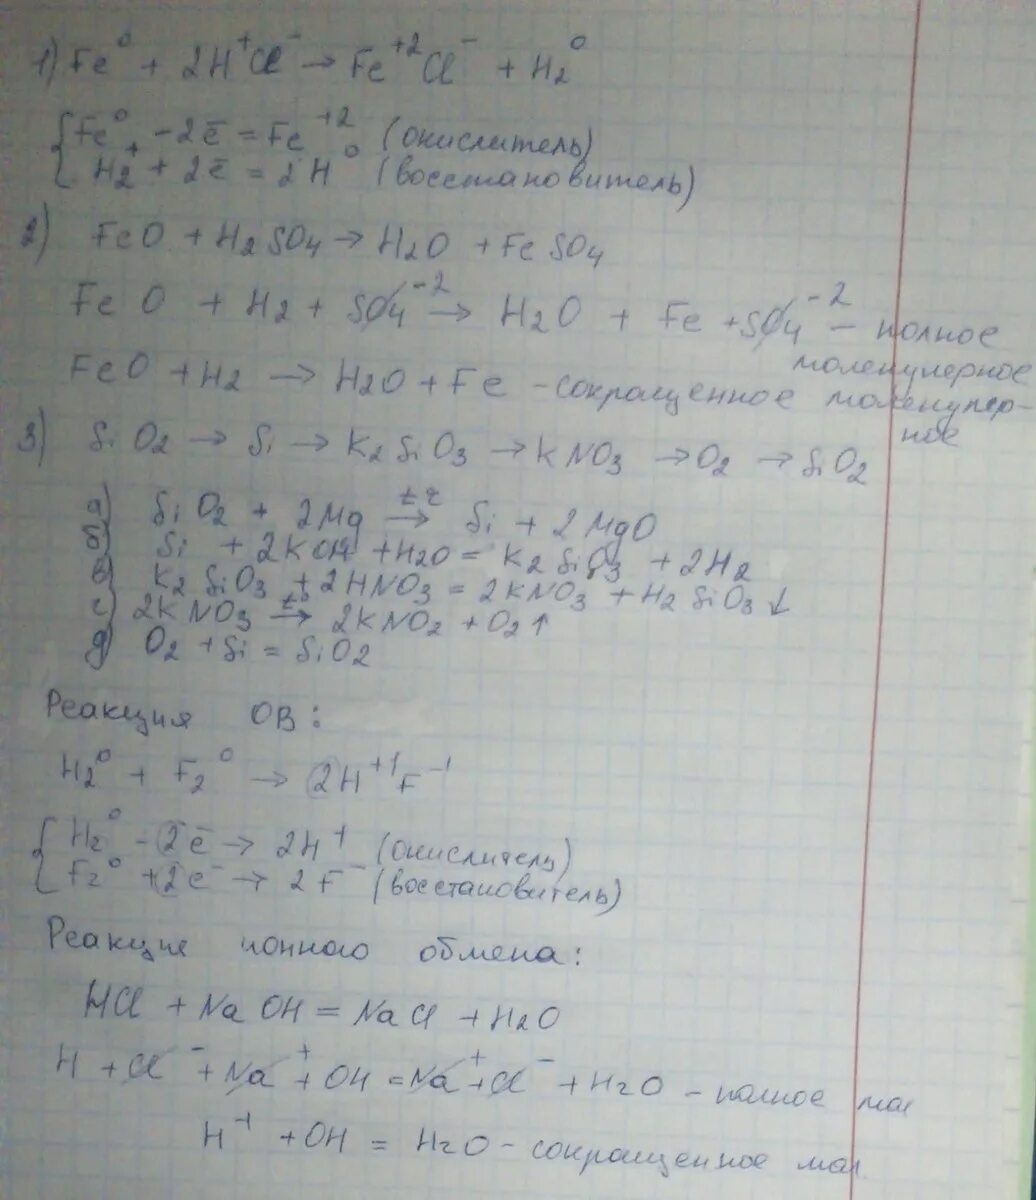 1) Fe⁰ + 2H⁺Cl⁻ → Fe⁺²Cl⁻ + H₂⁰
Fe⁰ - 2ē = Fe⁺² (окислитель)
H₂⁺ + 2ē = 2H⁰ (восстановитель)
2) FeO + H₂SO₄ → H₂O + FeSO₄
FeO + H₂ + SO₄⁻² → H₂O + Fe + SO₄⁻² – полное
молекулярное
FeO + H₂ → H₂O + Fe – сокращенное молекуляр-
ное
3) SiO₂ → Si → K₂SiO₃ → KNO₃ → O₂ → SiO₂
а) SiO₂ + 2Mg → Si + 2MgO
б) Si + 2KOH + H₂O = K₂SiO₃ + 2H₂
в) K₂SiO₃ + 2HNO₃ = 2KNO₃ + H₂SiO₃↓
с) 2KNO₃ →(t°) 2KNO₂ + O₂↑
д) O₂ + Si = SiO₂
Реакция ОВ:
H₂⁰ + F₂⁰ → 2H⁺¹F⁻¹
H₂⁰ - 2ē → 2H⁺ (окислитель)
F₂⁰ + 2e⁻ → 2F⁻ (восстановитель)
Реакция ионного обмена:
HCl + NaOH = NaCl + H₂O
H + Cl⁻ + Na⁺ + OH = Na⁺ + Cl⁻ + H₂O – полное мол
H⁺ + OH = H₂O – сокращенное мол